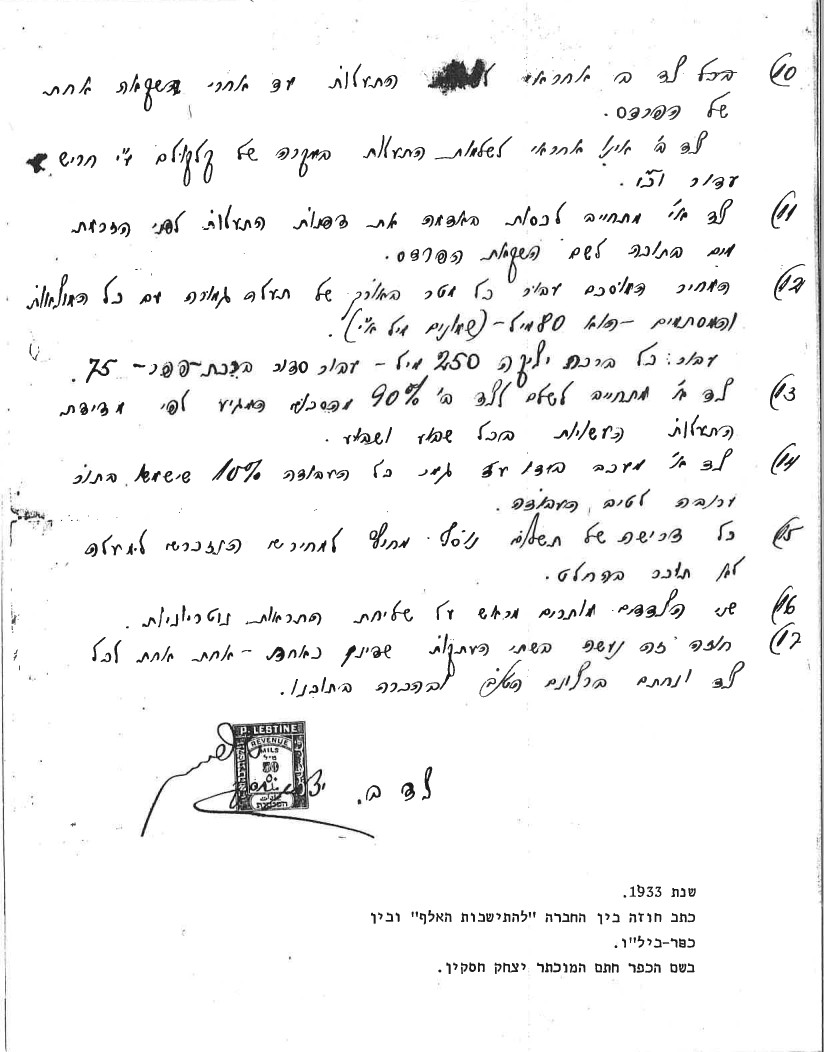 10) בכל צד ב אחראי התעלות עד אחרי השקאה אחת
של הפרדס.
צד ב' אינו אחראי לשלמות התעלות במקרה של קלקולים ע"י חריש
עדור וכו'.
11) צד א' מתחייב לכסות באדמה את דפנות התעלות לפני הזרמת
מים בתוכה לשם השקאת הפרדס.
12) המחיר המוסכם עבור כל מטר באורך של תעלה גמורה עם כל המוצאות
והמסתמים – הוא 80 מיל – (שמונים מיל א"י).
עבור: כל ברכת יציקה 250 מיל – עבור סדור ברכת – 75.
13) צד א' מתחייב לשלם לצד ב' 90% מהסכום המגיע לפי מדידת
התעלות העשויות בכל שבוע ושבוע.
14) צד א' מעכב בידו עד גמר כל העבודה 10% שישמשו בתור
ערובה לטיב העבודה.
15) כל דרישה של תשלום נוסף מחוץ למחירים הנזכרים למעלה
לא תוכר בהחלט.
16) שני הצדדים מותרים מראש על שליחת התראות נוטריוניות.
17) חוזה זה נעשה בשתי העתקות שדינן כאחת – אחת אחת לכל
צד ונחתם ברצונם הטוב ובהכרה
PALESTINE
REVENUE
MILS
מיל
50
צד ב. יצחק
שנת 1933.
כתב חוזה בין החברה "להתישבות האלף" ובין
כפר-ביל"ו.
בשם הכפר חתם המוכתר יצחק חסקין.